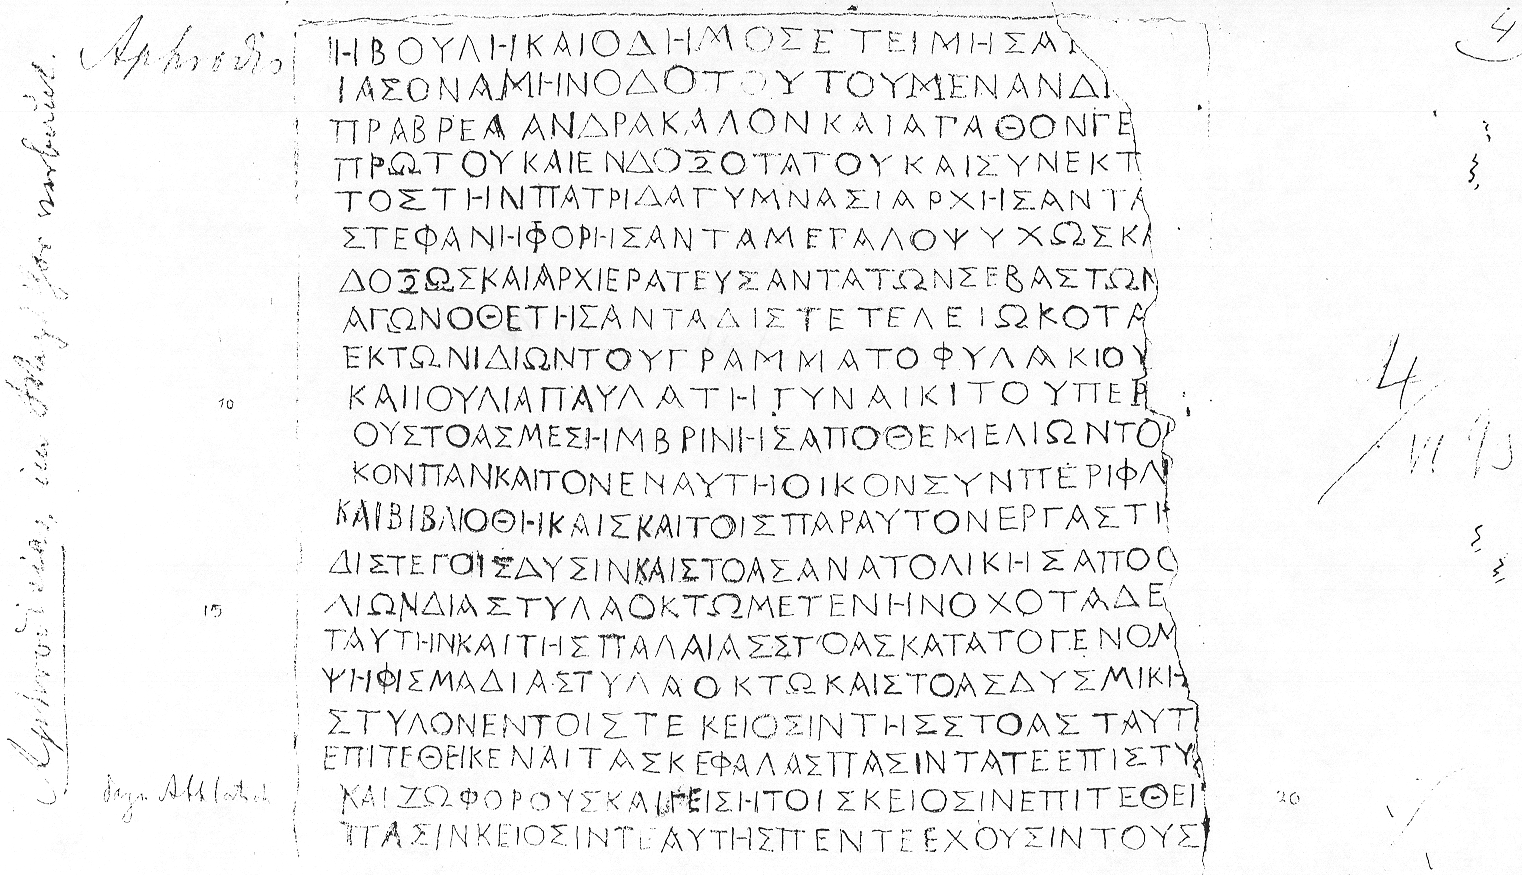 Aphrodis
4
ΗΒΟΥΛΗΚΑΙΟΔΗΜΟΣΕΤΕΙΜΗΣΑΝ
ΙΑΣΟΝΑΜΗΝΟΔΟΤΟΥΤΟΥΜΕΝΑΝΔΙ
ΠΡΑΒΡΕΑΑΝΔΡΑΚΑΛΟΝΚΑΙΑΓΑΘΟΝΓΕ
ΠΡΩΤΟΥΚΑΙΕΝΔΟΞΟΤΑΤΟΥΚΑΙΣΥΝΕΚΤ
ΤΟΣΤΗΝΠΑΤΡΙΔΑΓΥΜΝΑΣΙΑΡΧΗΣΑΝΤΑ
ΣΤΕΦΑΝΗΦΟΡΗΣΑΝΤΑΜΕΓΑΛΟΨΥΧΩΣΚΑ
ΔΟΞΩΣΚΑΙΑΡΧΙΕΡΑΤΕΥΣΑΝΤΑΤΩΝΣΕΒΑΣΤΩΝ
ΑΓΩΝΟΘΕΤΗΣΑΝΤΑΔΙΣΤΕΤΕΛΕΙΩΚΟΤΑ
ΕΚΤΩΝΙΔΙΩΝΤΟΥΓΡΑΜΜΑΤΟΦΥΛΑΚΙΟΥ
10 ΚΑΙΙΟΥΛΙΑΠΑΥΛΑΤΗΓΥΝΑΙΚΙΤΟΥΠΕΡ
ΟΥΣΤΟΑΣΜΕΣΗΜΒΡΙΝΗΣΑΠΟΘΕΜΕΛΙΩΝΤΟΡ
ΚΟΝΠΑΝΚΑΙΤΟΝΕΝΑΥΤΗΟΙΚΟΝΣΥΝΠΕΡΙΦΛΙ
ΚΑΙΒΙΒΛΙΟΘΗΚΑΙΣΚΑΙΤΟΙΣΠΑΡΑΥΤΟΝΕΡΓΑΣΤΗ
ΔΙΣΤΕΓΟΙΣΔΥΣΙΝΚΑΙΣΤΟΑΣΑΝΑΤΟΛΙΚΗΣΑΠΟΘ
15 ΛΙΩΝΔΙΑΣΤΥΛΑΟΚΤΩΜΕΤΕΝΗΝΟΧΟΤΑΔΕ
ΤΑΥΤΗΝΚΑΙΤΗΣΠΑΛΑΙΑΣΣΤΟΑΣΚΑΤΑΤΟΓΕΝΟΜ
ΨΗΦΙΣΜΑΔΙΑΣΤΥΛΑΟΚΤΩΚΑΙΣΤΟΑΣΔΥΣΜΙΚΗ
ΣΤΥΛΟΝΕΝΤΟΙΣΤΕΚΕΙΟΣΙΝΤΗΣΣΤΟΑΣΤΑΥΤΗ
ΕΠΙΤΕΘΕΙΚΕΝΑΙΤΑΣΚΕΦΑΛΑΣΠΑΣΙΝΤΑΤΕΕΠΙΣΤΥ
ΚΑΙΖΩΦΟΡΟΥΣΚΑΙΓΕΙΣΗΤΟΙΣΚΕΙΟΣΙΝΕΠΙΤΕΘΕΙ 20
ΠΑΣΙΝΚΕΙΟΣΙΝΤΕΑΥΤΗΣΠΕΝΤΕΕΧΟΥΣΙΝΤΟΥΣ
4